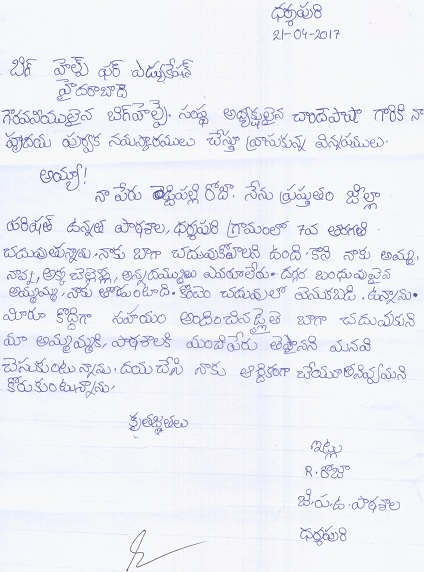 ధర్మపురి
21-04-2017
బిగ్ హెల్ప్ ఫర్ ఎడ్యుకేషన్
హైదరాబాద్
గౌరవనీయులైన బిగ్‌హెల్ప్ సంస్థ అధ్యక్షులైన చాంద్‌పాషా గారికి నా
హృదయ పూర్వక నమస్కారములు చేస్తూ వ్రాసుకున్న విన్నపములు.
అయ్యా!
నా పేరు రోజా. నేను ప్రస్తుతం జిల్లా
పరిషత్ ఉన్నత పాఠశాల, ధర్మపురి గ్రామంలో 7వ తరగతి
చదువుతున్నాను. నాకు బాగా చదువుకోవాలని ఉంది. కాని నాకు అమ్మ,
నాన్న, అక్క చెల్లెళ్ళు, అన్న దమ్ములు ఎవరూలేరు. దగ్గర బంధువులైన
అమ్మమ్మ, నాకు తోడుంటాది. కొంచెం చదువులో వెనుకబడి ఉన్నాను.
మీరూ కొద్దిగా సహాయం అందించినట్లైతె బాగా చదువుకుని
మా అమ్మమ్మకి, పాఠశాలకి మంచిపేరు తెస్తానని మనవి
చేసుకుంటున్నాను. దయచేసి నాకు ఆర్దికంగా చేయూతనివ్వమని
కోరుకుంటున్నాను.
కృతజ్ఞతలు
ఇట్లు
R. రోజా
జి.ప.ఉ. పాఠశాల
ధర్మపురి